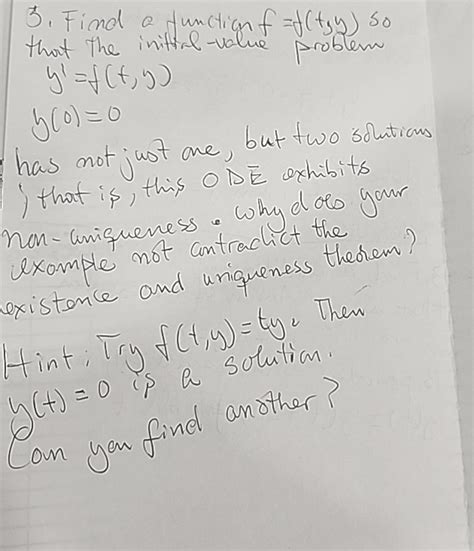 3. Find a function f = f(t,y) so
that the initial-value problem
y' = f(t, y)
y(0) = 0
has not just one, but two solutions
; that is, this ODE exhibits
non-uniqueness. Why does your
example not contradict the
existence and uniqueness theorem?
Hint: Try f(t,y) = ty. Then
y(t) = 0 is a solution.
Can you find another?